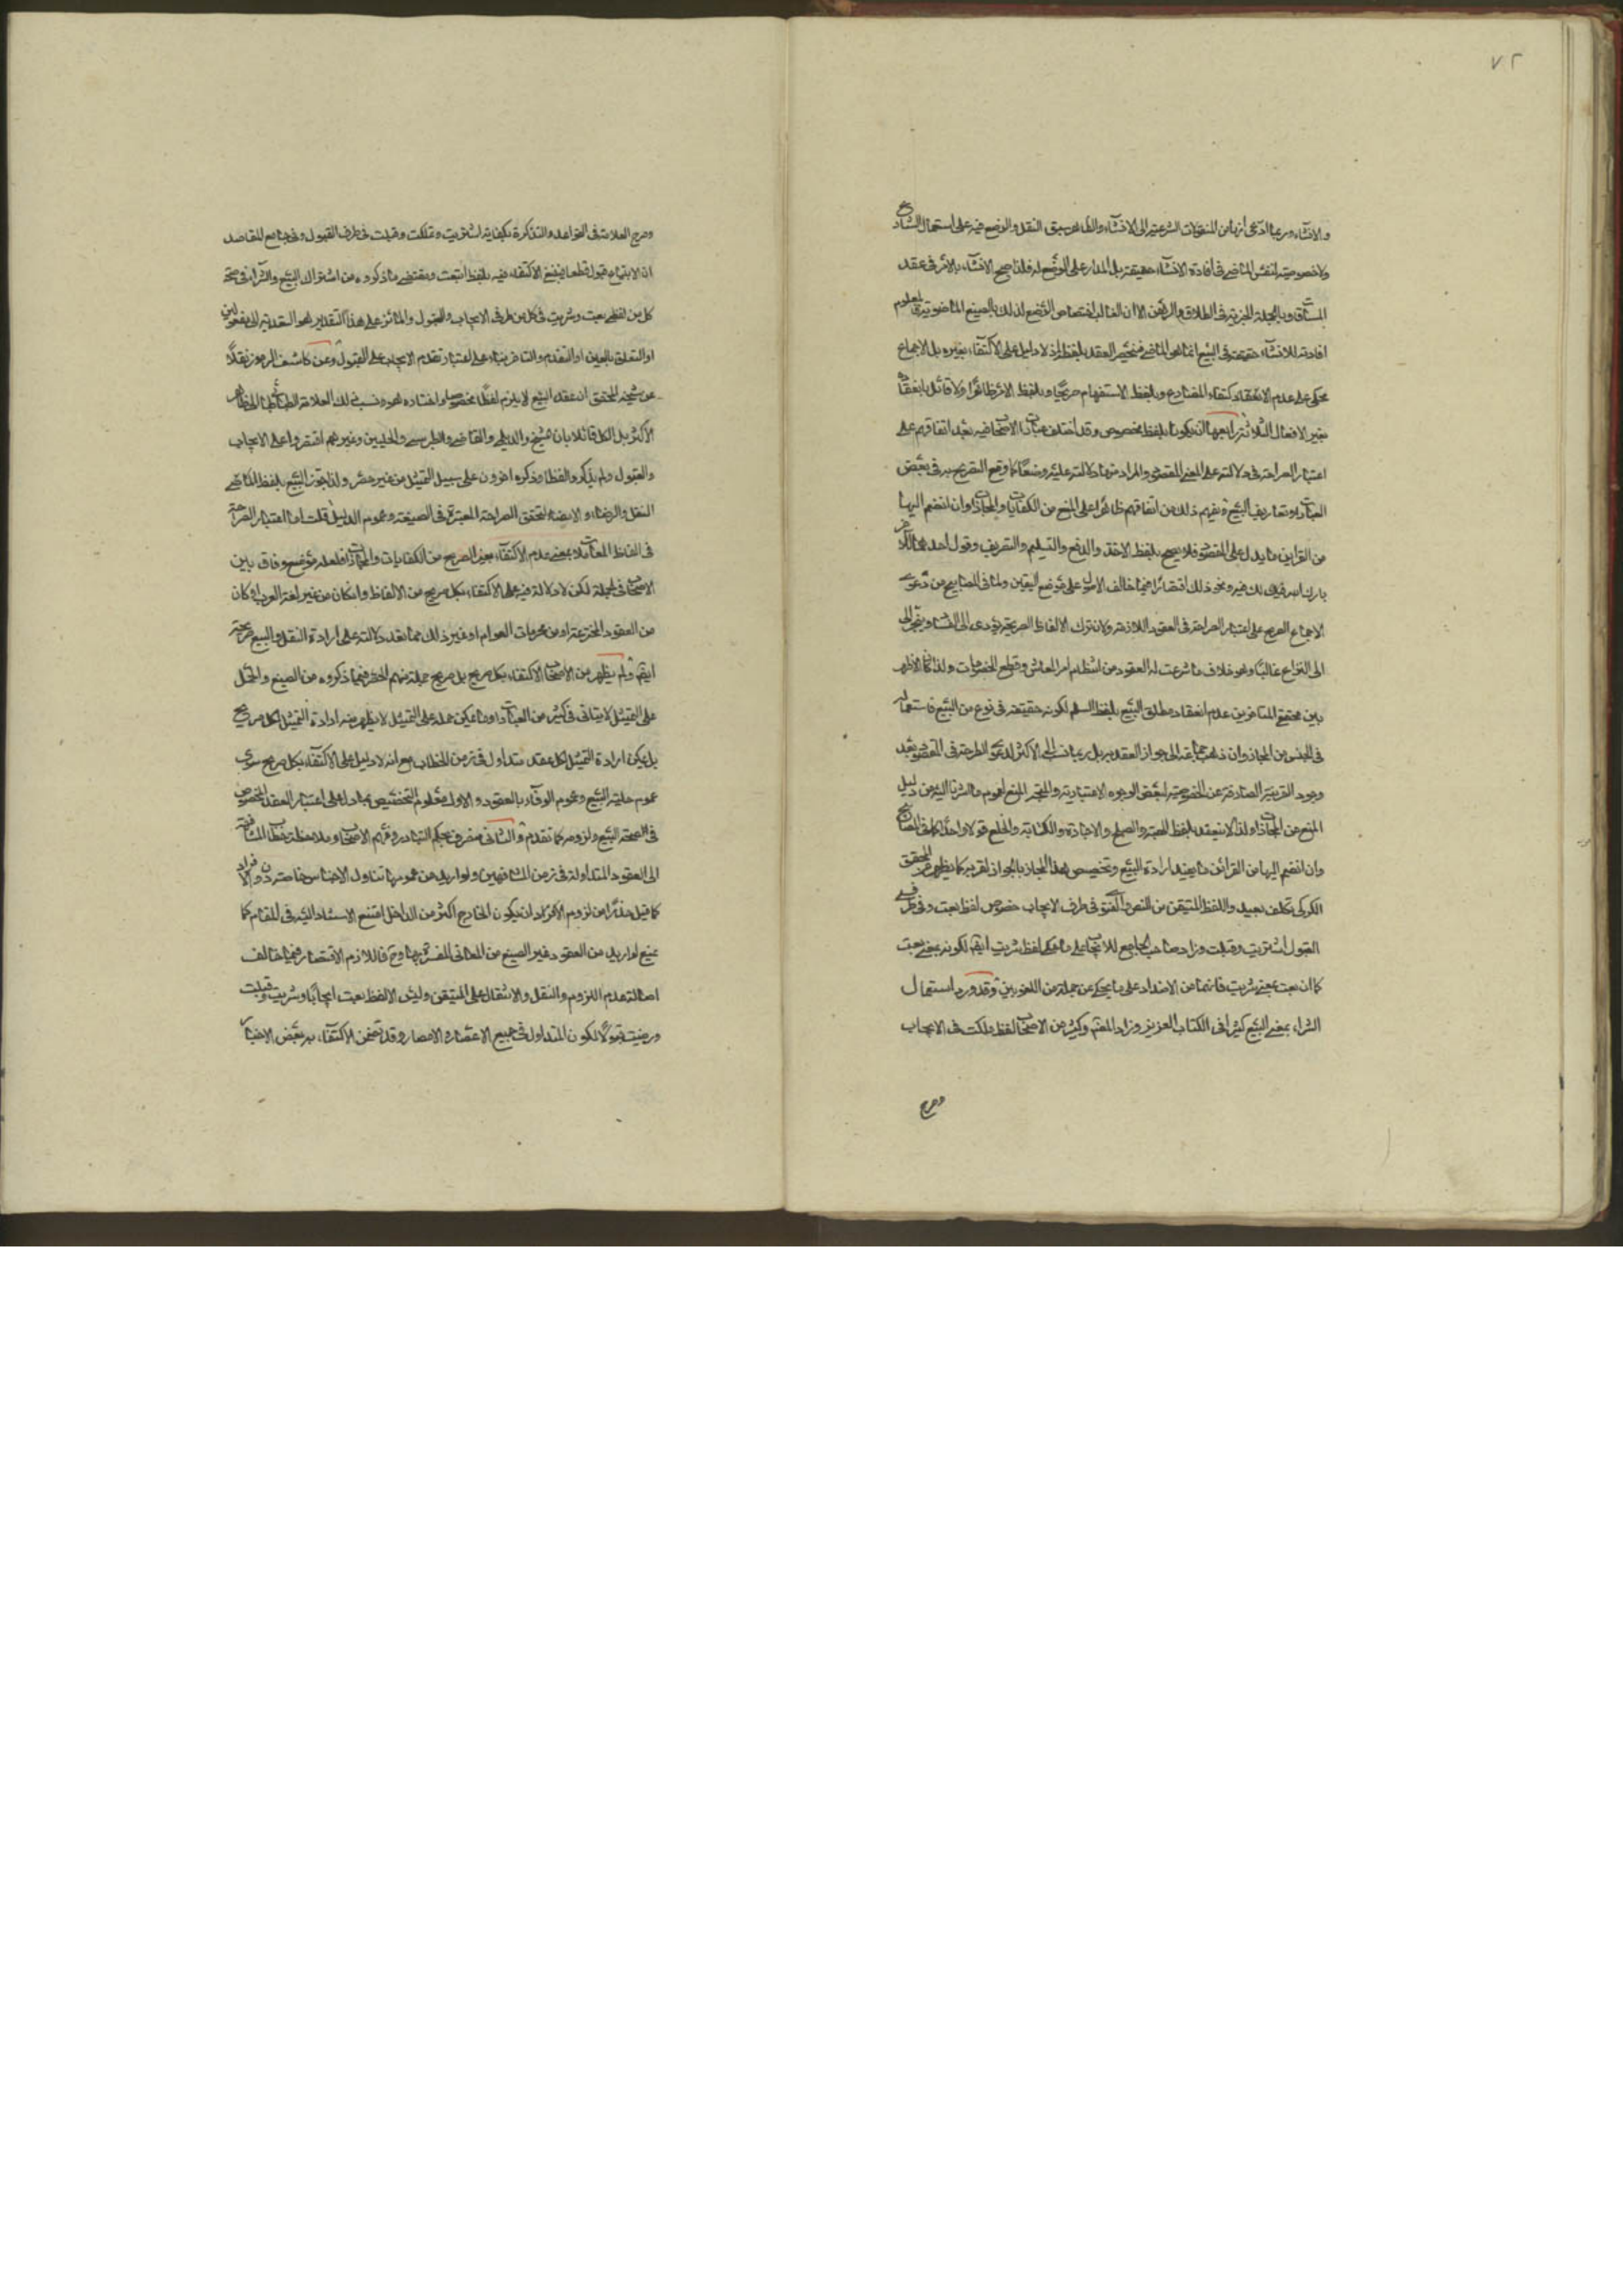 ٧٢
والانشاء وربما ادعى انها من المنقولات الشرعية الى الانشاء والظاهر سبق النقل والوضع فيه على استعمال الشارع
ولا خصوصية لنفس الماضي في افادة الانشاء حقيقة بل المدار على الوضع له فلذا صح الانشاء بالامر في عقد
وبالجملة الخبرية في الطلاق والرهن الا ان الغالب اختصاص الوضع لذلك بالصيغ الماضوية
افادته للانشاء حقيقة في البيع انما هي الماضي فينحصر العقد بلفظه اذ لا دليل على الاكتفاء بغيره بل الاجماع
محكي على عدم الانعقاد كتفاء المضارع وبلفظ الاستفهام صريحا وبلفظ الامر ظاهرا ولا قائل بانعقاده
بغير الافعال الثلاثة رابعها ان يكونا بلفظ مخصوص وقد اختلف عبارات الاصحاب فيه بعد اتفاقهم على
اعتبار الصراحة في دلالته على المعنى المقصود والمراد منها دلالته عليه وضعا كما وقع التصريح به في بعض
العبارات وتعاريف البيع فيفهم ذلك من اتفاقهم ظاهرا على المنع من الكنايات والمجازات وان انضم اليها
من القراين ما يدل على المقصود فلا يصح بلفظ الاخذ والدفع والتسليم والتصريف وقول احدهما للاخر
بارك الله فيك لك فيه ونحو ذلك اقتصارا فيما خالف الاصول على موضع اليقين ولما في المصابيح من دعوى
الاجماع الصريح على اعتبار الصراحة في العقود اللازمة ولان ترك الالفاظ الصريحة يؤدى الى الفساد ويجر الى
الى النزاع غالبا وهو خلاف ما شرعت له العقود من انتظام امر المعاش وقطع الخصومات ولذا كان الاظهر
بين محققي المتاخرين عدم انعقاد مطلق البيع بلفظ السلم لكونه حقيقة في نوع من البيع فاستعماله
في الجنس من المجاز وان ذهب جماعة الى جواز العقد به بل ربما نسب الى الاكثر لدعوى الصراحة في المقصود بعد
وجود القرينة الصارفة عن الخصوصية لبعض الوجوه الاعتبارية والمتجه المنع لعموم ما اشرنا اليه من دليل
المنع من المجازات ولذا لا ينعقد بلفظ الهبة والصلح والاجارة والكتابة والخلع قولا واحدا كما في المصابيح
وان انضم اليها من القرائن ما يفيد ارادة البيع وتخصيص هذا المجاز بالجواز لقربه كما يظهر من المحقق
الكركي تكلف بعيد واللفظ المتيقن من النص والفتوى في طرف الايجاب خصوص لفظ بعت وفي طرف
القبول اشتريت وقبلت وزاد صاحب الجامع للايجاب على ما حكى لفظ شريت ايضا لكونه بمعنى بعت
كما ان بعت بمعنى شريت فانهما من الاضداد على ما يحكى عن جملة من اللغويين وقد ورد استعمال
الشراء بمعنى البيع كثيرا في الكتاب العزيز وزاد المفيد وكثير من الاصحاب لفظ ملكت في الايجاب
وصرح
وصرح العلامة في القواعد والتذكرة بكفاية اشتريت وتملكت وقبلت في طرف القبول وفي جامع المقاصد
ان الابتياع قبول قطعا فينبغي الاكتفاء فيه بلفظ ابتعت ومقتضى ما ذكروه من اشتراك البيع والشراء في صحة
كل من لفظي بعت وشريت في كل من طرفي الايجاب والقبول والمائز على هذا التقدير هو التعدية الى مفعولين
او التعلق بالعين او التقدم والتاخر بناء على اعتبار تقدم الايجاب على القبول وعن كاشف الرموز نقلا
عن شيخه المحقق ان عقد البيع لا يلزم لفظا مخصوصا واختاره هو ونسب ذلك العلامة الطباطبائى الى ظاهر
الاكثر بل الكل قائلا بان الشيخ والديلمي والقاضي والطبرسي والحلبيين وغيرهم اقتصروا على الايجاب
والقبول ولم يذكروا لفظا وذكره اخرون على سبيل التمثيل من غير حصر ولذا يجوز البيع بلفظ الماضي
النقل والرضاء والامضاء لتحقق الصراحة المعتبرة في الصيغة وعموم الدليل قلت اما اعتبار الصراحة
في الفاظ المعاملة بمعنى عدم الاكتفاء بغير الصريح من الكنايات والمجازات فلعله موضع وفاق بين
الاصحاب في الجملة لكن لا دلالة فيه على الاكتفاء بكل صريح من الالفاظ وان كان من غير لغة العرب او كان
من العقود المخترعة او من محرفات العوام او غير ذلك مما تعد دلالته على ارادة النقل والبيع صريحة
ايضا ولم يظهر من الاصحاب الاكتفاء بكل صريح بل صريح جملة منهم الحصر فيما ذكروه من الصيغ والحمل
على التمثيل لا يتاتى في كثير من العبارات وما يمكن حمله على التمثيل لا يظهر منه ارادة التمثيل لكل صريح
بل يمكن ارادة التمثيل لكل عقد متداول في زمن الخطاب مع انه لا دليل على الاكتفاء بكل صريح سوى
عموم حلية البيع وعموم الوفاء بالعقود والاول معلوم التخصيص بما دل على اعتبار العقد المخصوص
في الصحة البيع ولزومه كما تقدم والثاني مصرف بحكم التبادر وفهم الاصحاب وملاحظة خطاب المشافهة
الى العقود المتداولة في زمن المشافهين ولو اريد من عمومها تناول الاجناس خاصة دون الافراد
كما قيل حذرا من لزوم ان يكون الخارج اكثر من الداخل امتنع الاستناد اليه في المقام كما
يمنع لو اريد من العقود غير الصيغ من المعاني المفسرة بها وح فاللازم الاقتصار فيما خالف
اصالة عدم اللزوم والنقل والانتقال على المتيقن وليس الا لفظ بعت ايجابا وشريت وقبلت
ورضيت قبولا لكون المتداول في جميع الاعصار والامصار وقد تضمن الاكتفاء به بعض الاخبار